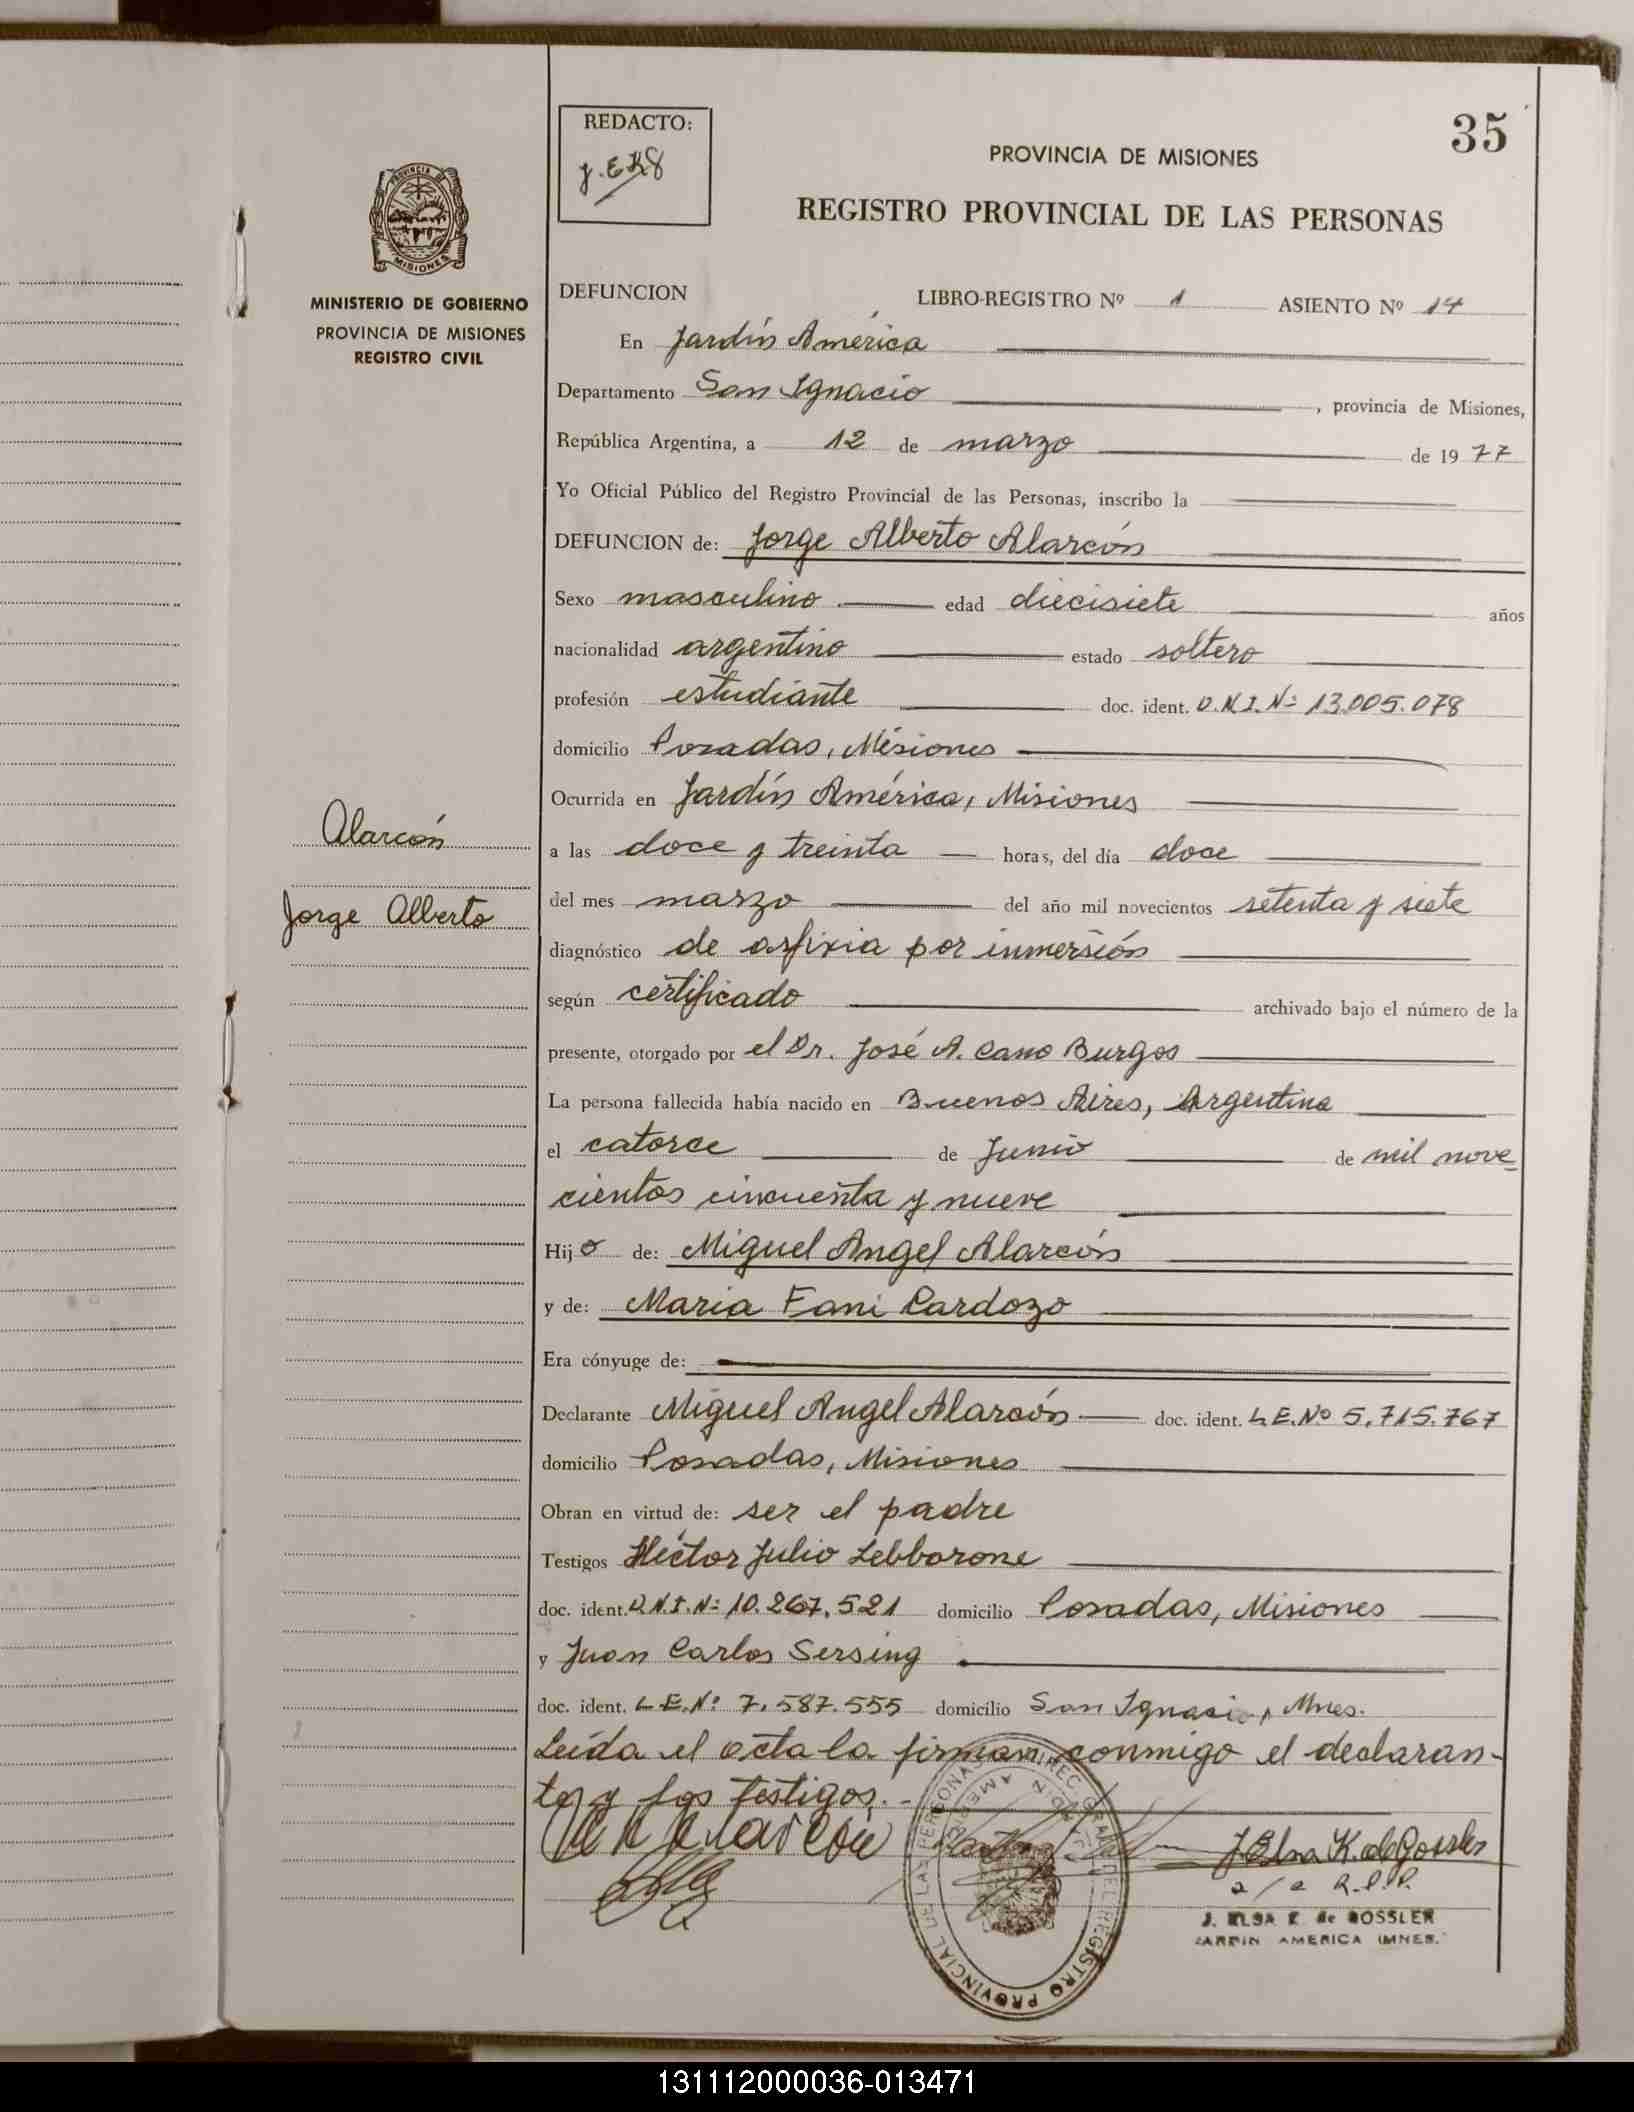 35
REDACTO:
PROVINCIA DE MISIONES
REGISTRO PROVINCIAL DE LAS PERSONAS
PROVINCIA DE
MISIONES
MINISTERIO DE GOBIERNO
PROVINCIA DE MISIONES
REGISTRO CIVIL
DEFUNCION LIBRO-REGISTRO Nº 1 ASIENTO Nº 14
En Jardín América
Departamento San Ignacio, provincia de Misiones,
República Argentina, a 12 de marzo de 1977
Yo Oficial Público del Registro Provincial de las Personas, inscribo la
DEFUNCION de: Jorge Alberto Alarcón
Sexo masculino edad diecisiete años
nacionalidad argentino estado soltero
profesión estudiante doc. ident. D.N.I. Nº 13.005.078
domicilio Posadas, Misiones
Ocurrida en Jardín América, Misiones
Alarcón
Jorge Alberto
a las doce y treinta horas, del día doce
del mes marzo del año mil novecientos setenta y siete
diagnóstico de asfixia por inmersión
según certificado archivado bajo el número de la
presente, otorgado por el Dr. José A. Cano Burgos
La persona fallecida había nacido en Buenos Aires, Argentina
el catorce de Junio de mil nove
cientos cincuenta y nueve
Hijo de: Miguel Angel Alarcón
y de: Maria Fani Cardozo
Era cónyuge de:
Declarante Miguel Angel Alarcón doc. ident. L.E.Nº 5.715.767
domicilio Posadas, Misiones
Obran en virtud de: ser el padre
Testigos Héctor Julio Lebborone
doc. ident. D.N.I.Nº 10.267.521 domicilio Posadas, Misiones
y Juan Carlos Sersing
doc. ident. L.E.Nº 7.587.555 domicilio San Ignacio, Mnes.
Leída el acta la firman conmigo el declaran-
te y los testigos.-
Alarcón
J. Elsa K. de Gossler
a/c R.P.P.
J. ELSA K. de GOSSLER
JARDIN AMERICA (MNES.
REGISTRO PROVINCIAL DE LAS PERSONAS
131112000036-013471